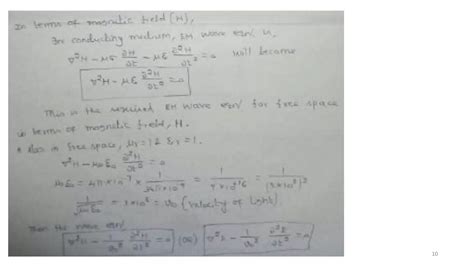 In terms of magnetic field (H),
In conducting medium, EM wave eqn is,
∇²H - μσ ∂H/∂t - με ∂²H/∂t² = 0 will become
∇²H - με ∂²H/∂t² = 0
This is the required EM wave eqn for free space
in terms of magnetic field, H.
Also in free space, μr = 1 & εr = 1.
∇²H - μ₀ε₀ ∂²H/∂t² = 0
μ₀ε₀ = 4π×10⁻⁷ × 1/(36π×10⁹) = 1/(9×10¹⁶) = 1/(3×10⁸)²
1/√(μ₀ε₀) = 3×10⁸ = v₀ (velocity of light)
Then the wave eqn
∇²H - 1/v₀² ∂²H/∂t² = 0 (OR) ∇²E - 1/v₀² ∂²E/∂t² = 0
10